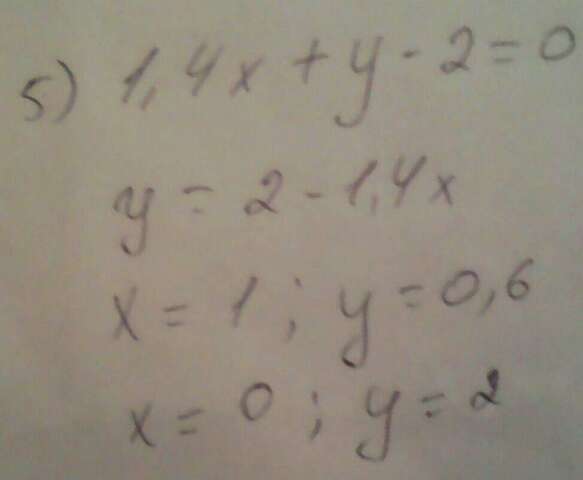 5) 1,4x + y - 2 = 0
y = 2 - 1,4x
x = 1 ; y = 0,6
x = 0 ; y = 2